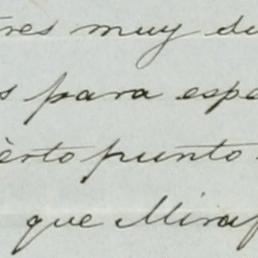 res muy de
s para espe
erto punto
que Miraf